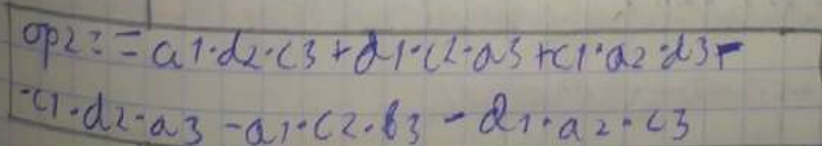 опр2:=a1·d2·c3+d1·c2·a3+c1·a2·d3-
-c1·d2·a3-a1·c2·b3-d1·a2·c3